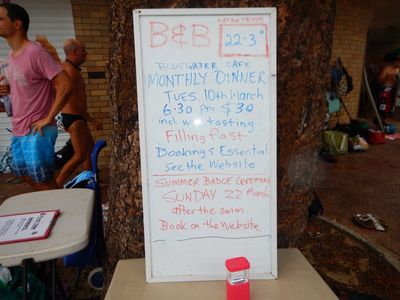 B&B
WATER TEMP
22.3°
BLUEWATER CAFE
MONTHLY DINNER
TUES. 10th March
6.30 pm $30
incl wine tasting
Filling fast
Bookings Essential
see the Website
SUMMER BADGE CEREMONY
SUNDAY 22 March
after the swim
Book on the Website.